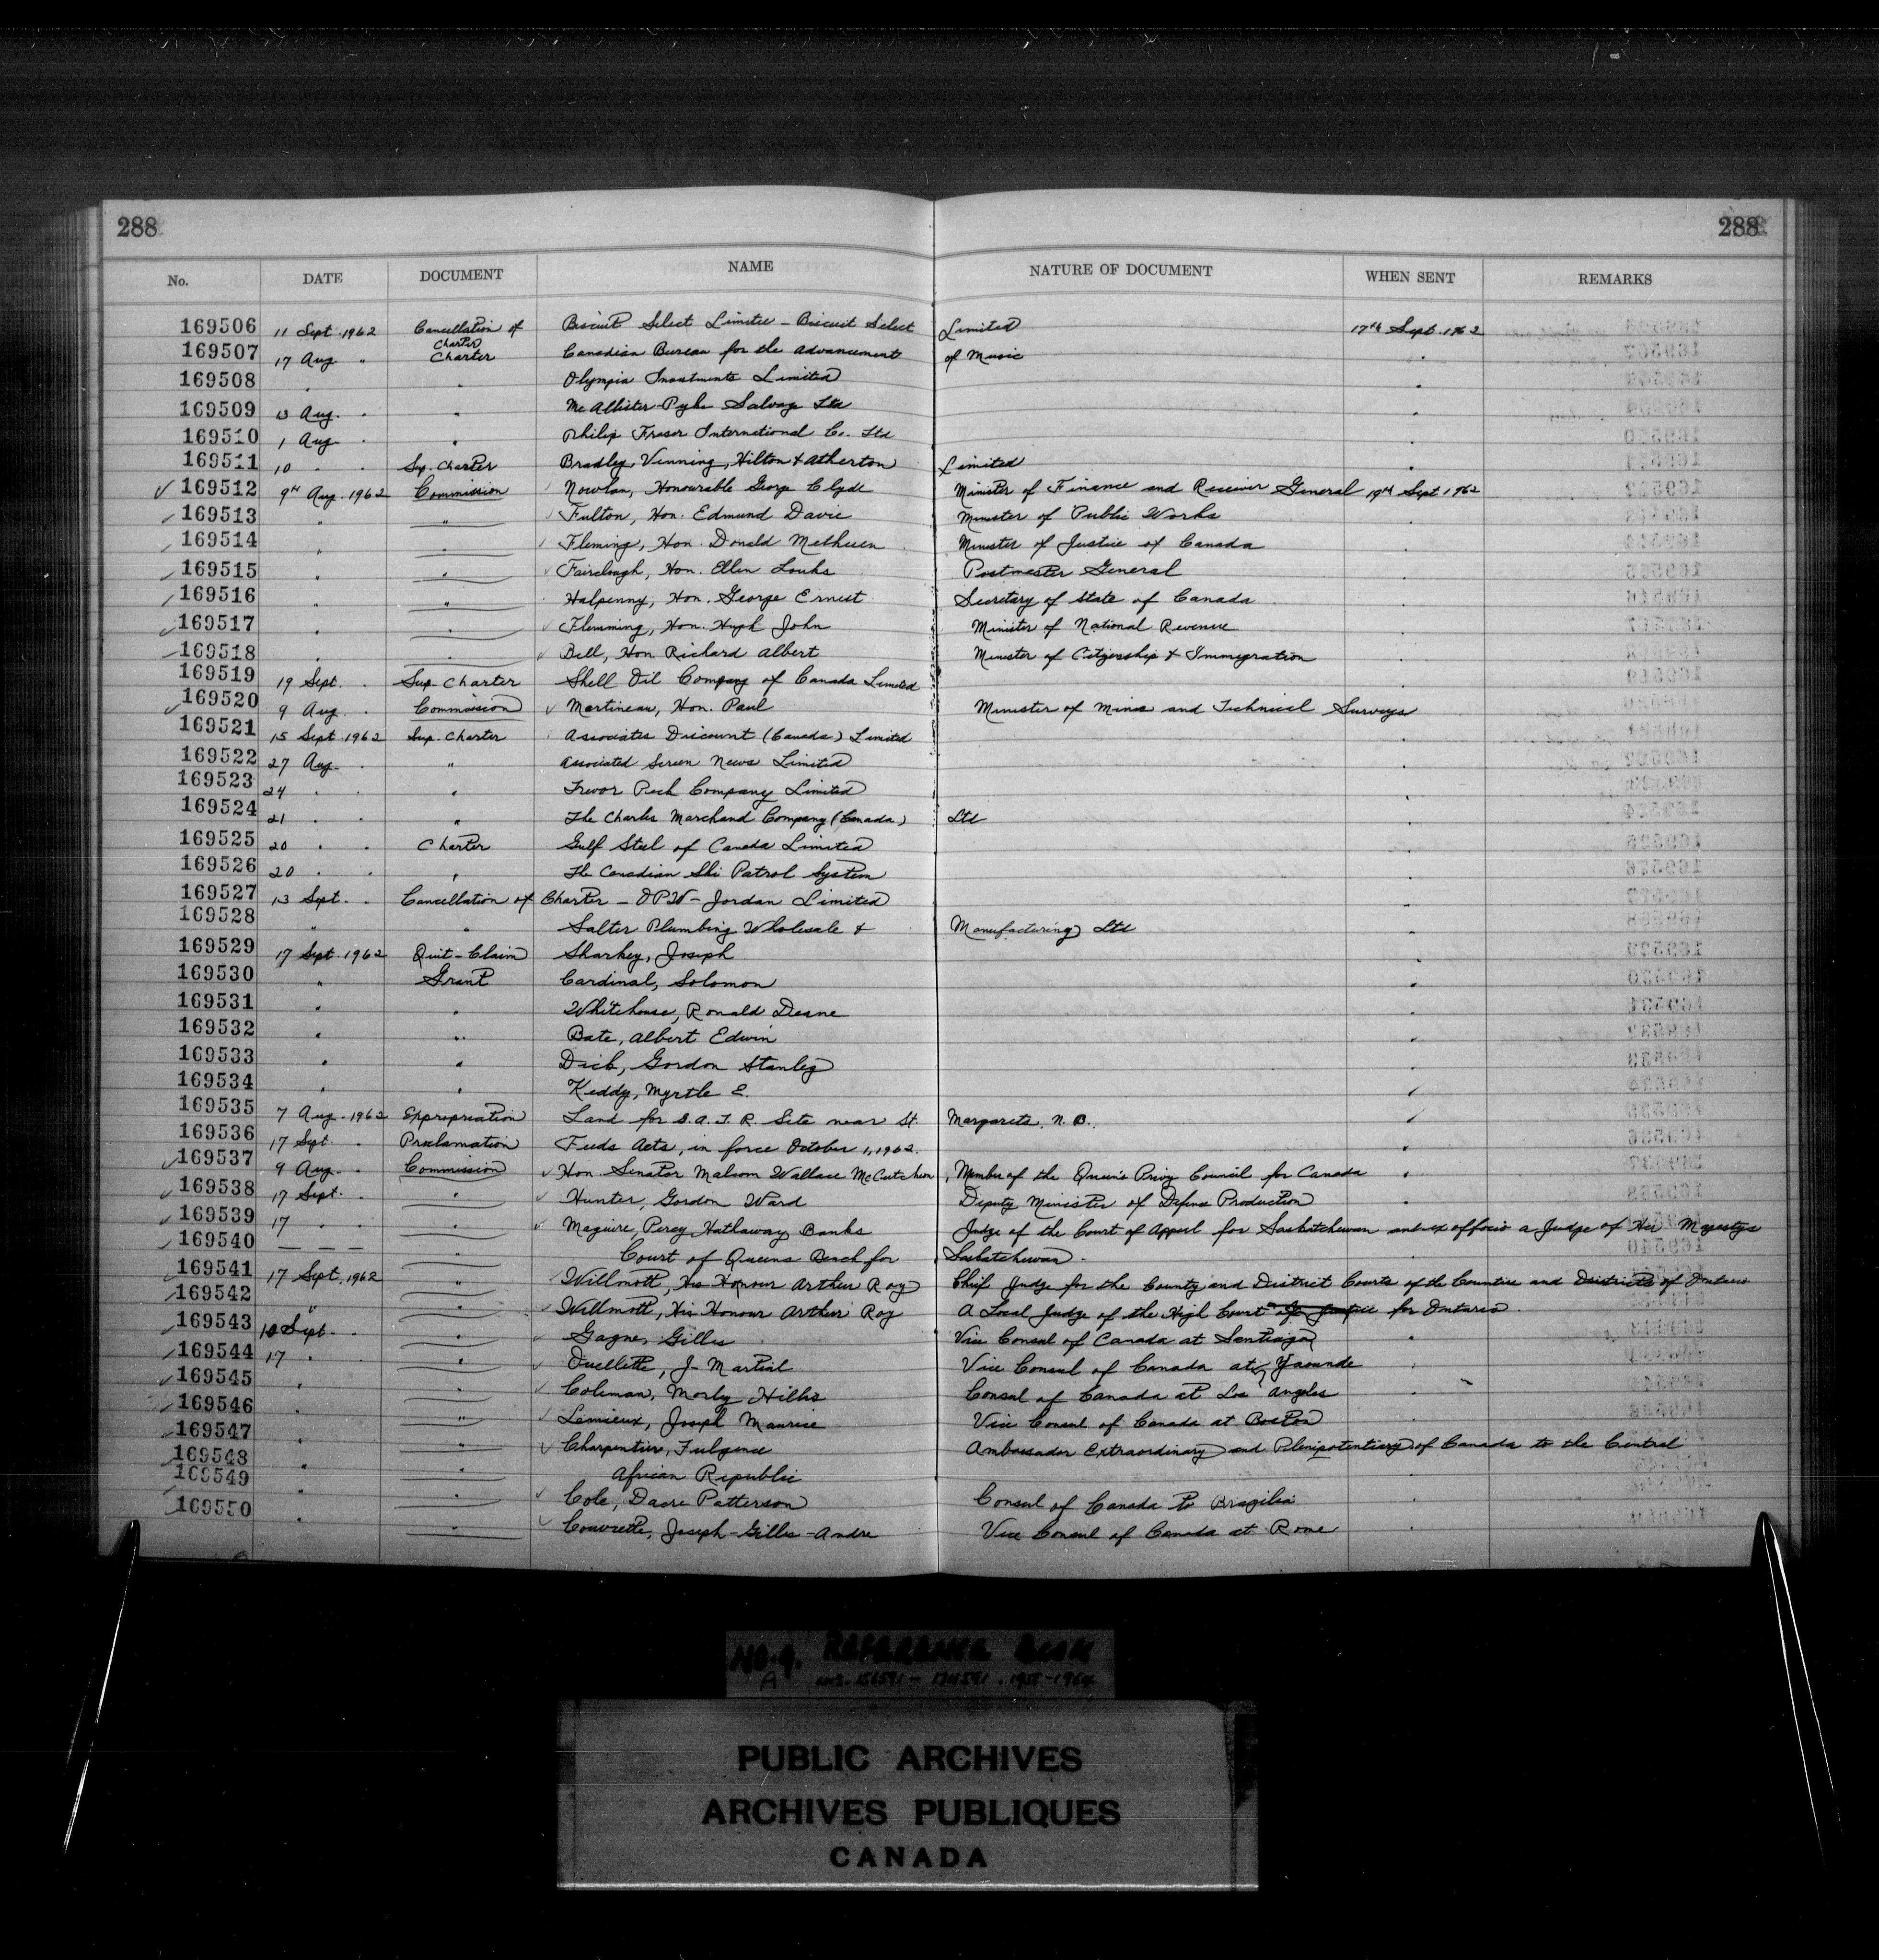 288 288
No. DATE DOCUMENT NAME NATURE OF DOCUMENT WHEN SENT REMARKS
169506 11 Sept. 1962 Cancellation of Charter Biscuit Select Limitee - Biscuit Select Limited 17th Sept. 1962
169507 17 Aug " Charter Canadian Bureau for the Advancement of Music "
169508 " " Olympia Investments Limited "
169509 13 Aug. " " McAllister-Pyke Salvage Ltd "
169510 1 Aug " " Philip Fraser International Co. Ltd "
169511 10 " " Sup. Charter Bradley, Venning, Hilton & Atherton Limited "
169512 9th Aug. 1962 Commission Nowlan, Honourable George Clyde Minister of Finance and Receiver General 19th Sept 1962
169513 " " Fulton, Hon. Edmund Davie Minister of Public Works "
169514 " " Fleming, Hon. Donald Methuen Minister of Justice of Canada "
169515 " " Fairclough, Hon. Ellen Louks Postmaster General "
169516 " " Halpenny, Hon. George Ernest Secretary of State of Canada "
169517 " " Flemming, Hon. Hugh John Minister of National Revenue "
169518 " " Bell, Hon Richard Albert Minister of Citizenship & Immigration "
169519 19 Sept. " Sup. Charter Shell Oil Company of Canada Limited "
169520 9 Aug. " Commission Martineau, Hon. Paul Minister of Mines and Technical Surveys
169521 15 Sept. 1962 Sup. Charter Associates Discount (Canada) Limited "
169522 27 Aug. " " Associated Screen News Limited "
169523 24 " " " Trevor Peck Company Limited "
169524 21 " " " The Charles Marchand Company (Canada) Ltd "
169525 20 " " Charter Gulf Steel of Canada Limited "
169526 20 " " " The Canadian Ski Patrol System "
169527 13 Sept. " Cancellation of Charter - OPW-Jordan Limited "
169528 " " Salter Plumbing Wholesale & Manufacturing Ltd "
169529 17 Sept. 1962 Quit-Claim Sharkey, Joseph "
169530 " Grant Cardinal, Solomon "
169531 " " Whitehouse, Ronald Deane "
169532 " " Bate, Albert Edwin "
169533 " " Dick, Gordon Stanley "
169534 " " Keddy, Myrtle E. "
169535 7 Aug. 1962 Expropriation Land for S.A.T.R. Site near St. Margarets, N.B. "
169536 17 Sept. " Proclamation Feeds Acts, in force October 1, 1962. "
169537 9 Aug. " Commission Hon. Senator Malcom Wallace McCutcheon, Member of the Queen's Privy Council for Canada "
169538 17 Sept. " " Hunter, Gordon Ward Deputy Minister of Defence Production "
169539 17 " " " Maguire, Percy Hathaway Banks Judge of the Court of Appeal for Saskatchewan and ex officio a Judge of Her Majestys
169540 — — — " Court of Queens Bench for Saskatchewan.
169541 17 Sept. 1962 " Willmott, His Honour Arthur Roy Chief Judge for the County and District Courts of the Counties and Districts of Ontario
169542 " " Willmott, His Honour Arthur Roy A Local Judge of the High Court of Justice for Ontario.
169543 10 Sept. " " Gagne, Gilles Vice Consul of Canada at Santiago "
169544 17 " " Ouellette, J-Martial Vice Consul of Canada at Yaounde "
169545 " " Coleman, Morley Hillis Consul of Canada at Los Angeles "
169546 " " Lemieux, Joseph Maurice Vice Consul of Canada at Boston "
169547 " " Charpentier, Fulgence Ambassador Extraordinary and Plenipotentiary of Canada to the Central
169548 " " African Republic "
169549 " " Cole, Dacre Patterson Consul of Canada to Brazilia "
169550 " " Couvrette, Joseph-Gilles-Andre Vice Consul of Canada at Rome "
NO. 9. REFERENCE BOOK
A NOS. 156591 - 174591. 1955-1964
PUBLIC ARCHIVES
ARCHIVES PUBLIQUES
CANADA